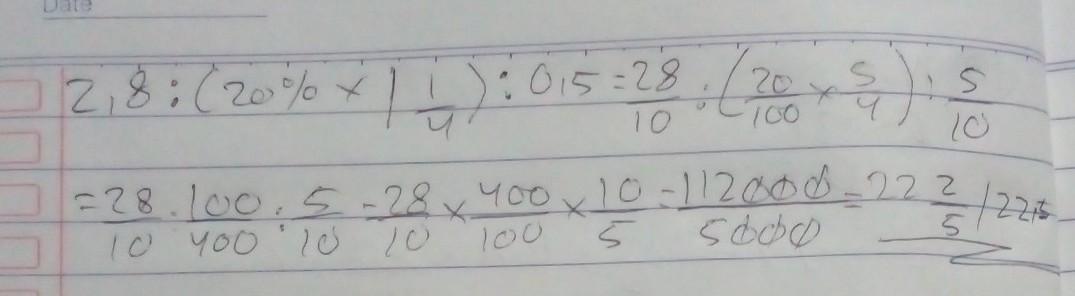 Date
2,8 : (20% × 1 1/4) : 0,5 = 28/10 : (20/100 × 5/4) : 5/10
= 28/10 : 100/400 : 5/10 = 28/10 × 400/100 × 10/5 = 112000/5000 = 22 2/5 / 22,5